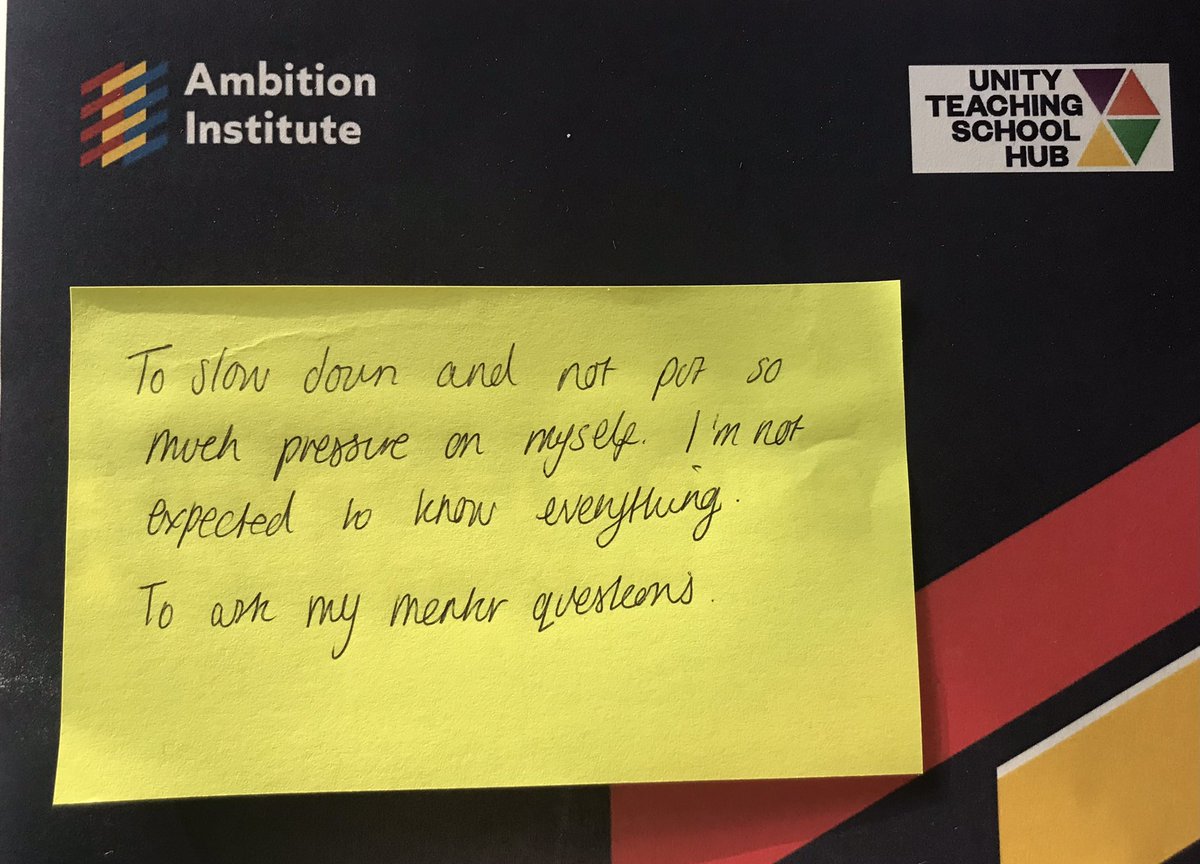 Ambition
Institute
UNITY
TEACHING
SCHOOL
HUB
To slow down and not put so
much pressure on myself. I'm not
expected to know everything.
To ask my mentor questions.